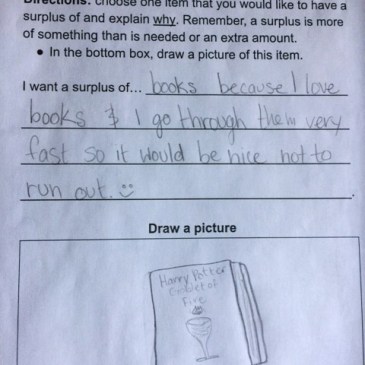 Directions: choose one item that you would like to have a
surplus of and explain why. Remember, a surplus is more
of something than is needed or an extra amount.
• In the bottom box, draw a picture of this item.
I want a surplus of... books because I love
books & I go through them very
fast so it would be nice not to
run out. :)
Draw a picture
Harry Potter
Goblet of
Fire